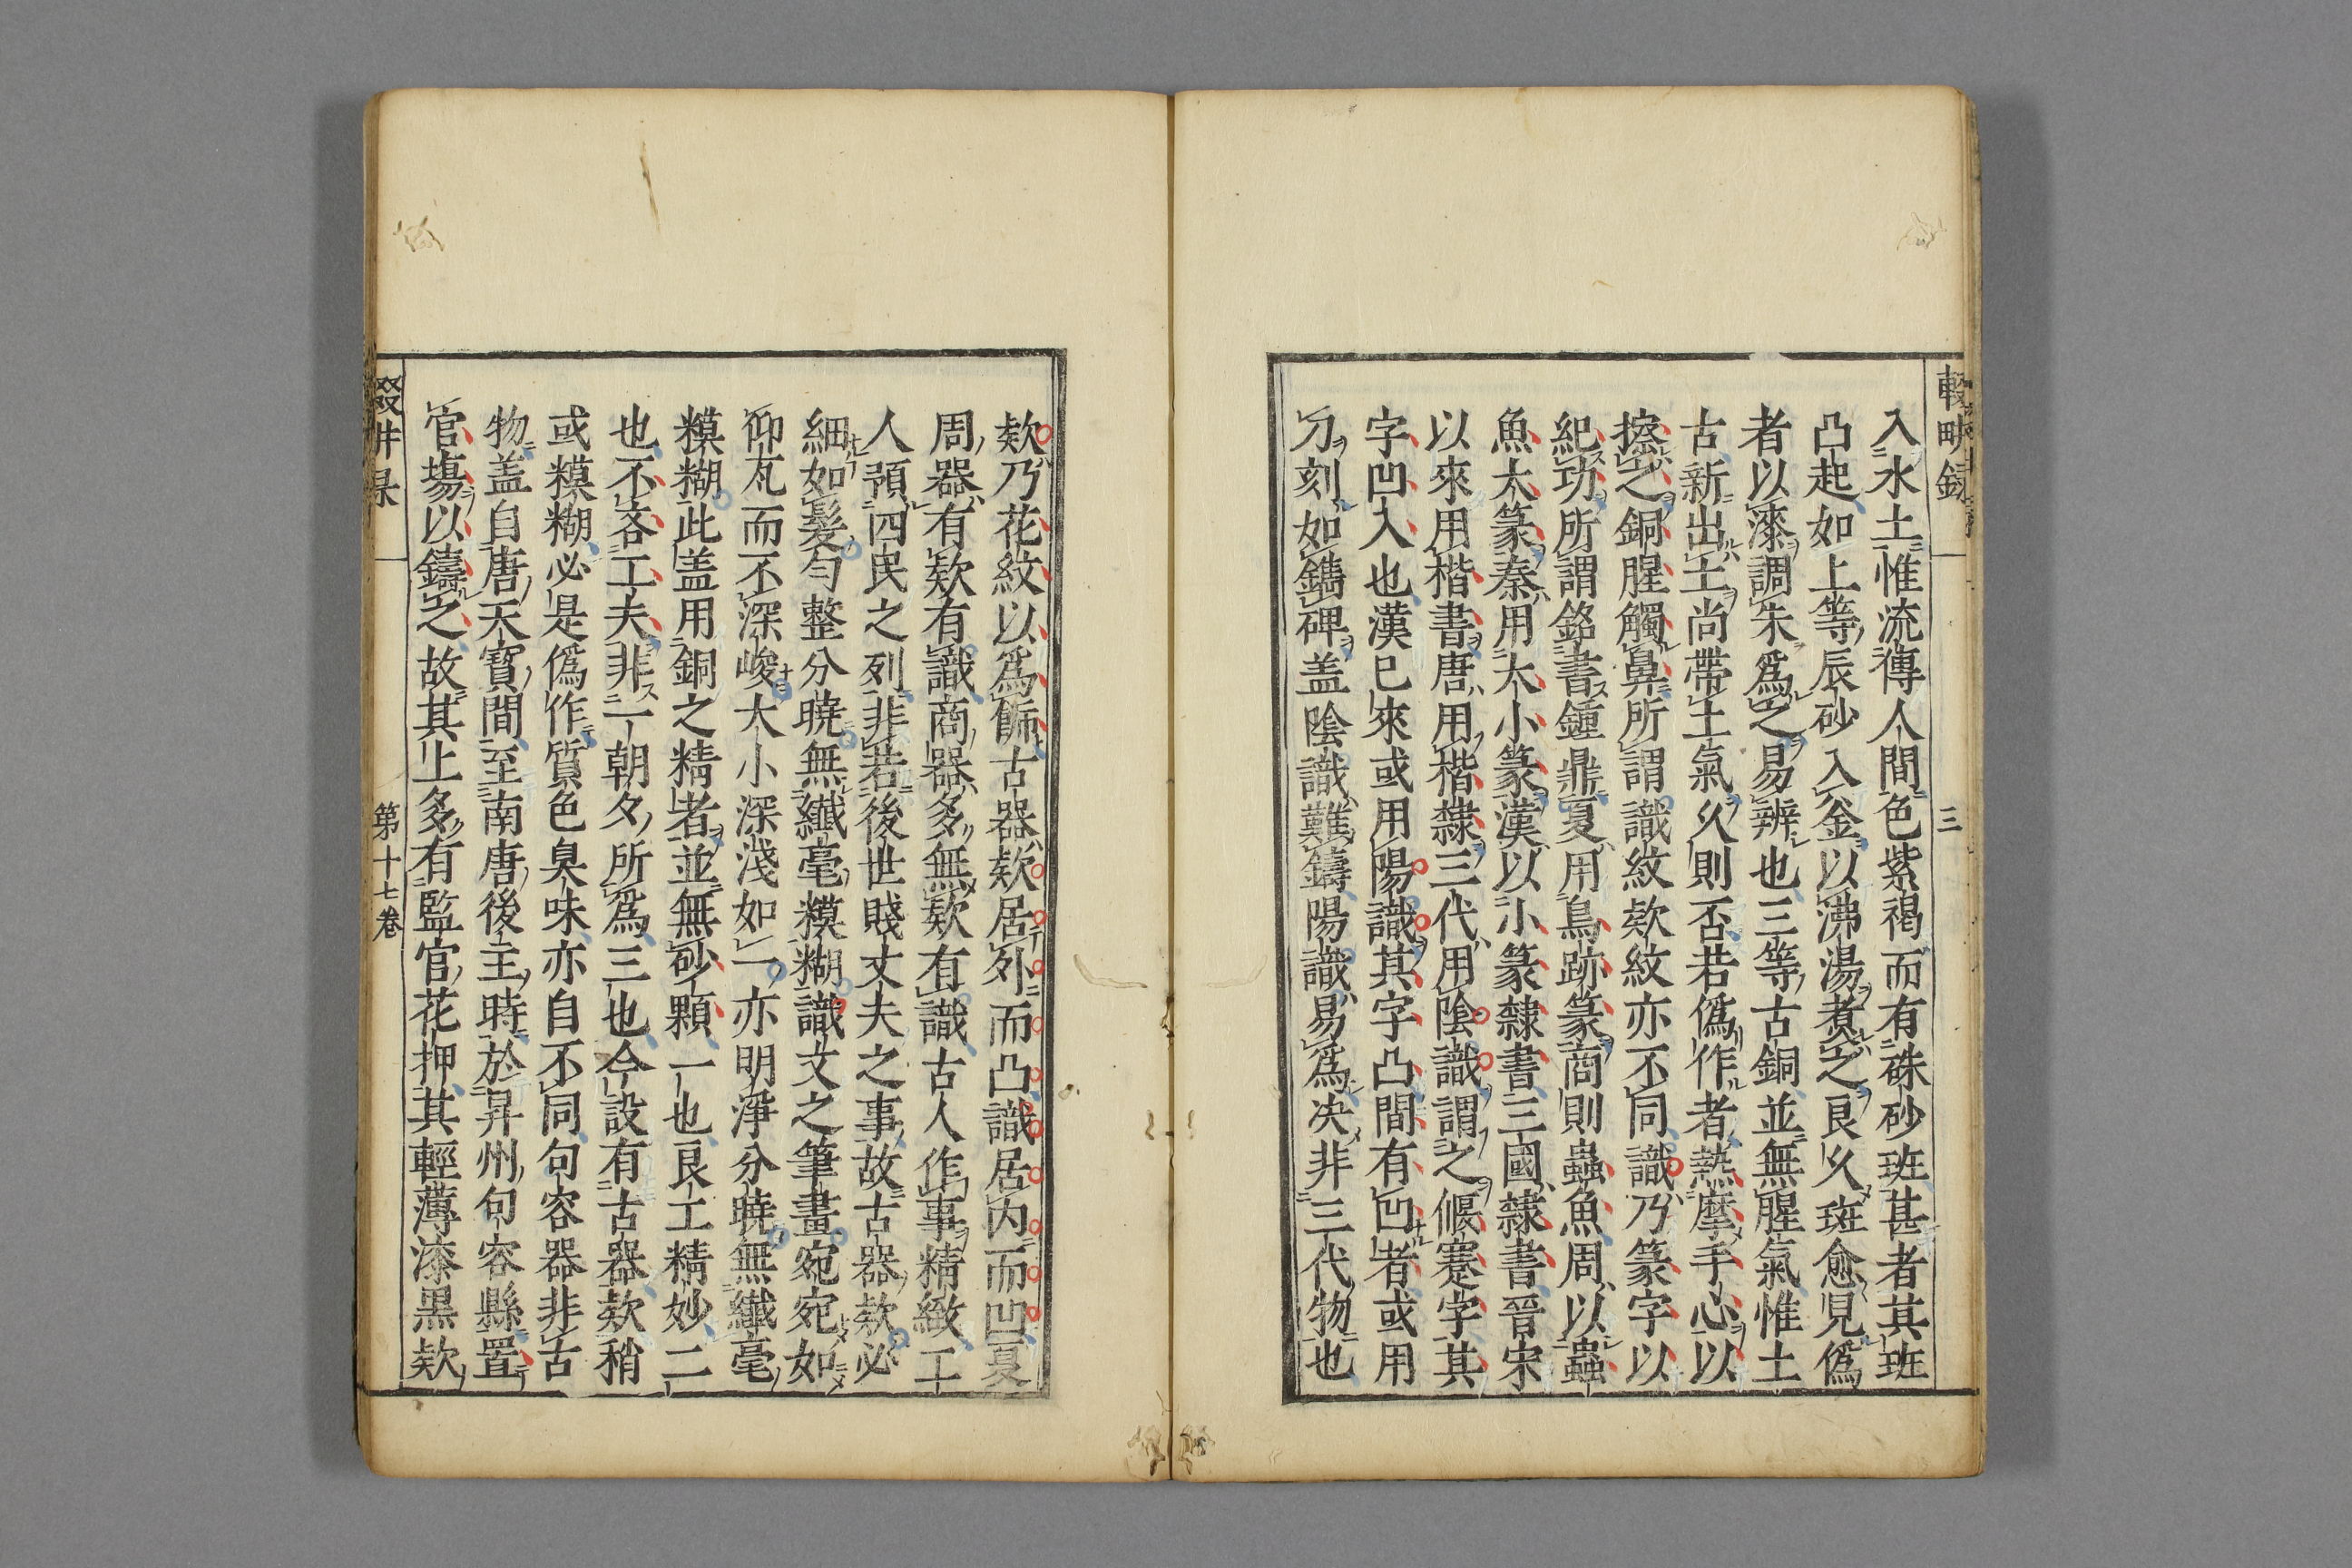 輟畊録
三
入水土惟流傳人間色紫褐而有硃砂班甚者其班
凸起如上等辰砂入釡以沸湯煮之良久斑愈見僞
者以漆調朱爲之易辨也三等古銅並無腥氣惟土
古新出土尚帶土氣久則否若僞作者熱摩手心以
擦之銅腥觸鼻所謂識紋欵紋亦不同識乃篆字以
紀功所謂銘書鍾鼎夏用鳥跡篆商則蟲魚周以蟲
魚大篆秦用大小篆漢以小篆隷書三國隷書晉宋
以來用楷書唐用楷隷三代用陰識謂之偃蹇字其
字凹入也漢已來或用陽識其字凸間有凹者或用
刀刻如鐫碑盖陰識難鑄陽識易爲决非三代物也
欵乃花紋以爲餙古器欵居外而凸識居内而凹夏
周器有欵有識商器多無欵有識古人作事精緻工
人預四民之列非若後世賤丈夫之事故古器欵必
細如髮勻整分曉無纎毫糢糊識文之筆畫宛宛如
仰瓦而不深峻大小深淺如一亦明淨分曉無纎毫
糢糊此盖用銅之精者並無砂顆一也良工精妙二
也不吝工夫非一朝夕所爲三也今設有古器欵稍
或糢糊必是僞作質色臭味亦自不同句容器非古
物盖自唐天寳間至南唐後主時於昇州句容縣置
官塲以鑄之故其上多有監官花押其輕薄漆黒欵
第十七卷